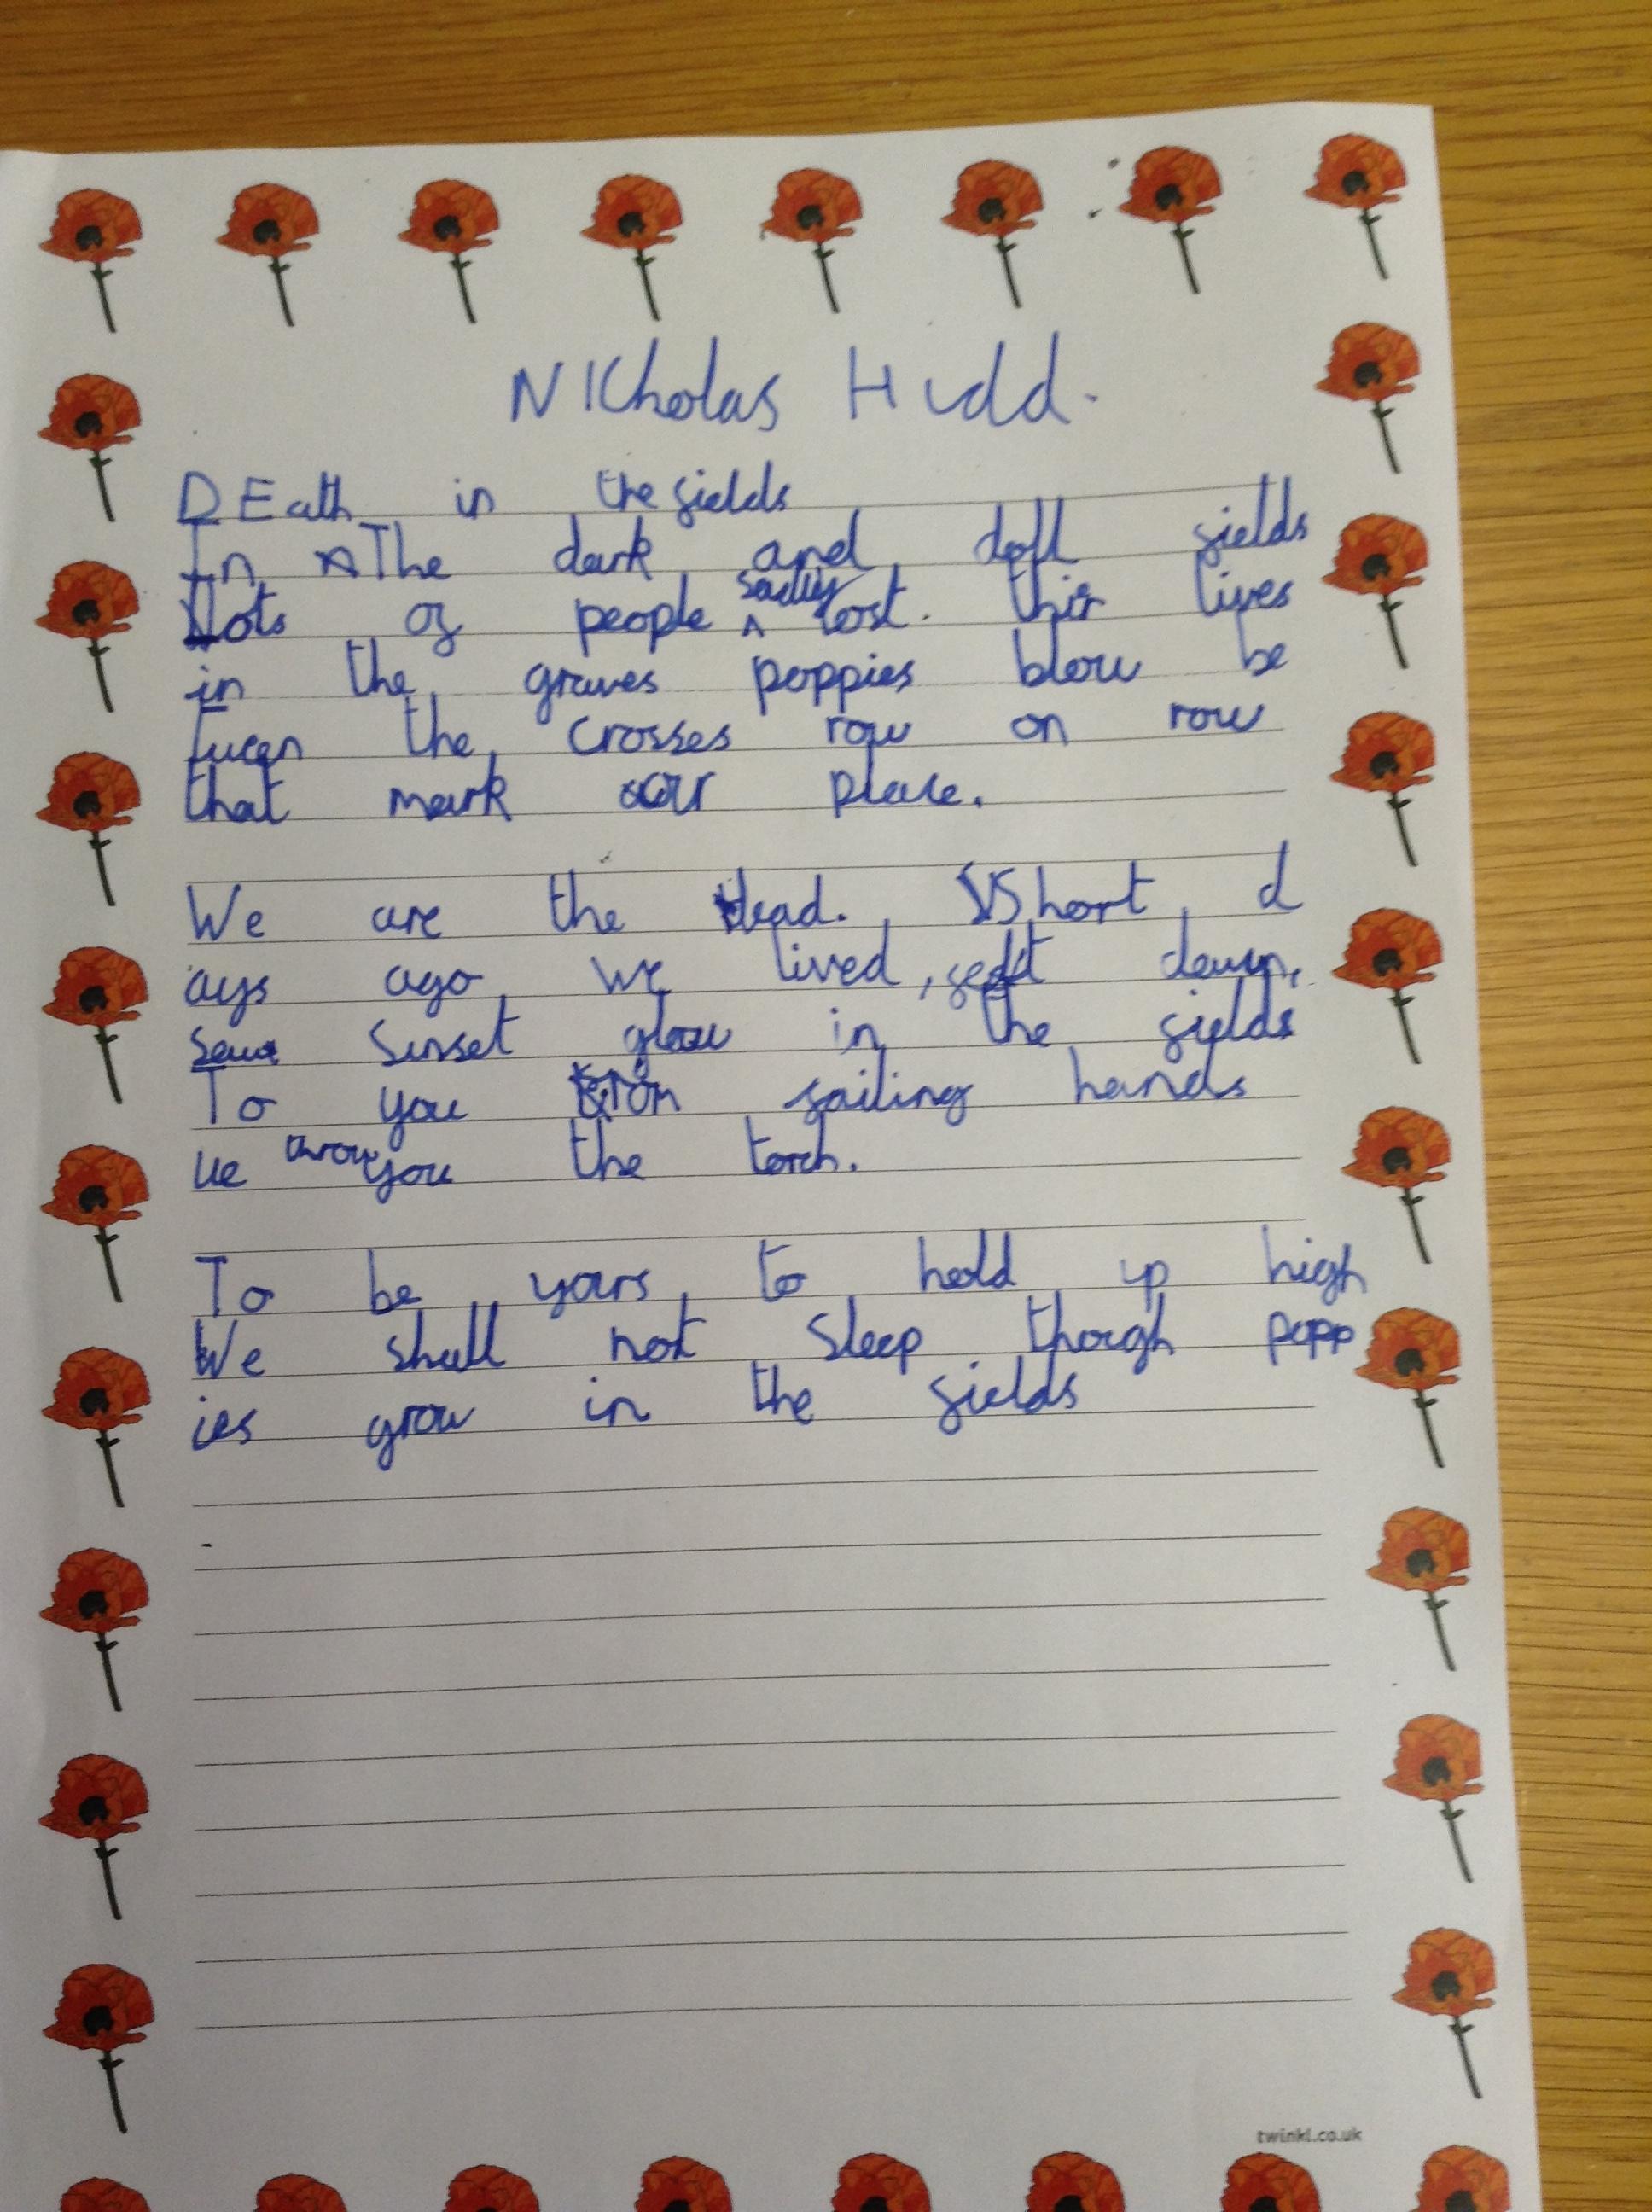 NIcholas Hudd.
DEath in the fields
In The dark and doll fields
lots of people sadly lost. thir lives
in the graves poppies blow be
tween the crosses row on row
that mark our place.
We are the dead. Short d
ays ago we lived, felt dawn,
saw sunset glow in the fields
To you from failing hands
we throw you the torch.
To be yours to hold up high
We shall not sleep though popp
ies grow in the fields
twinkl.co.uk